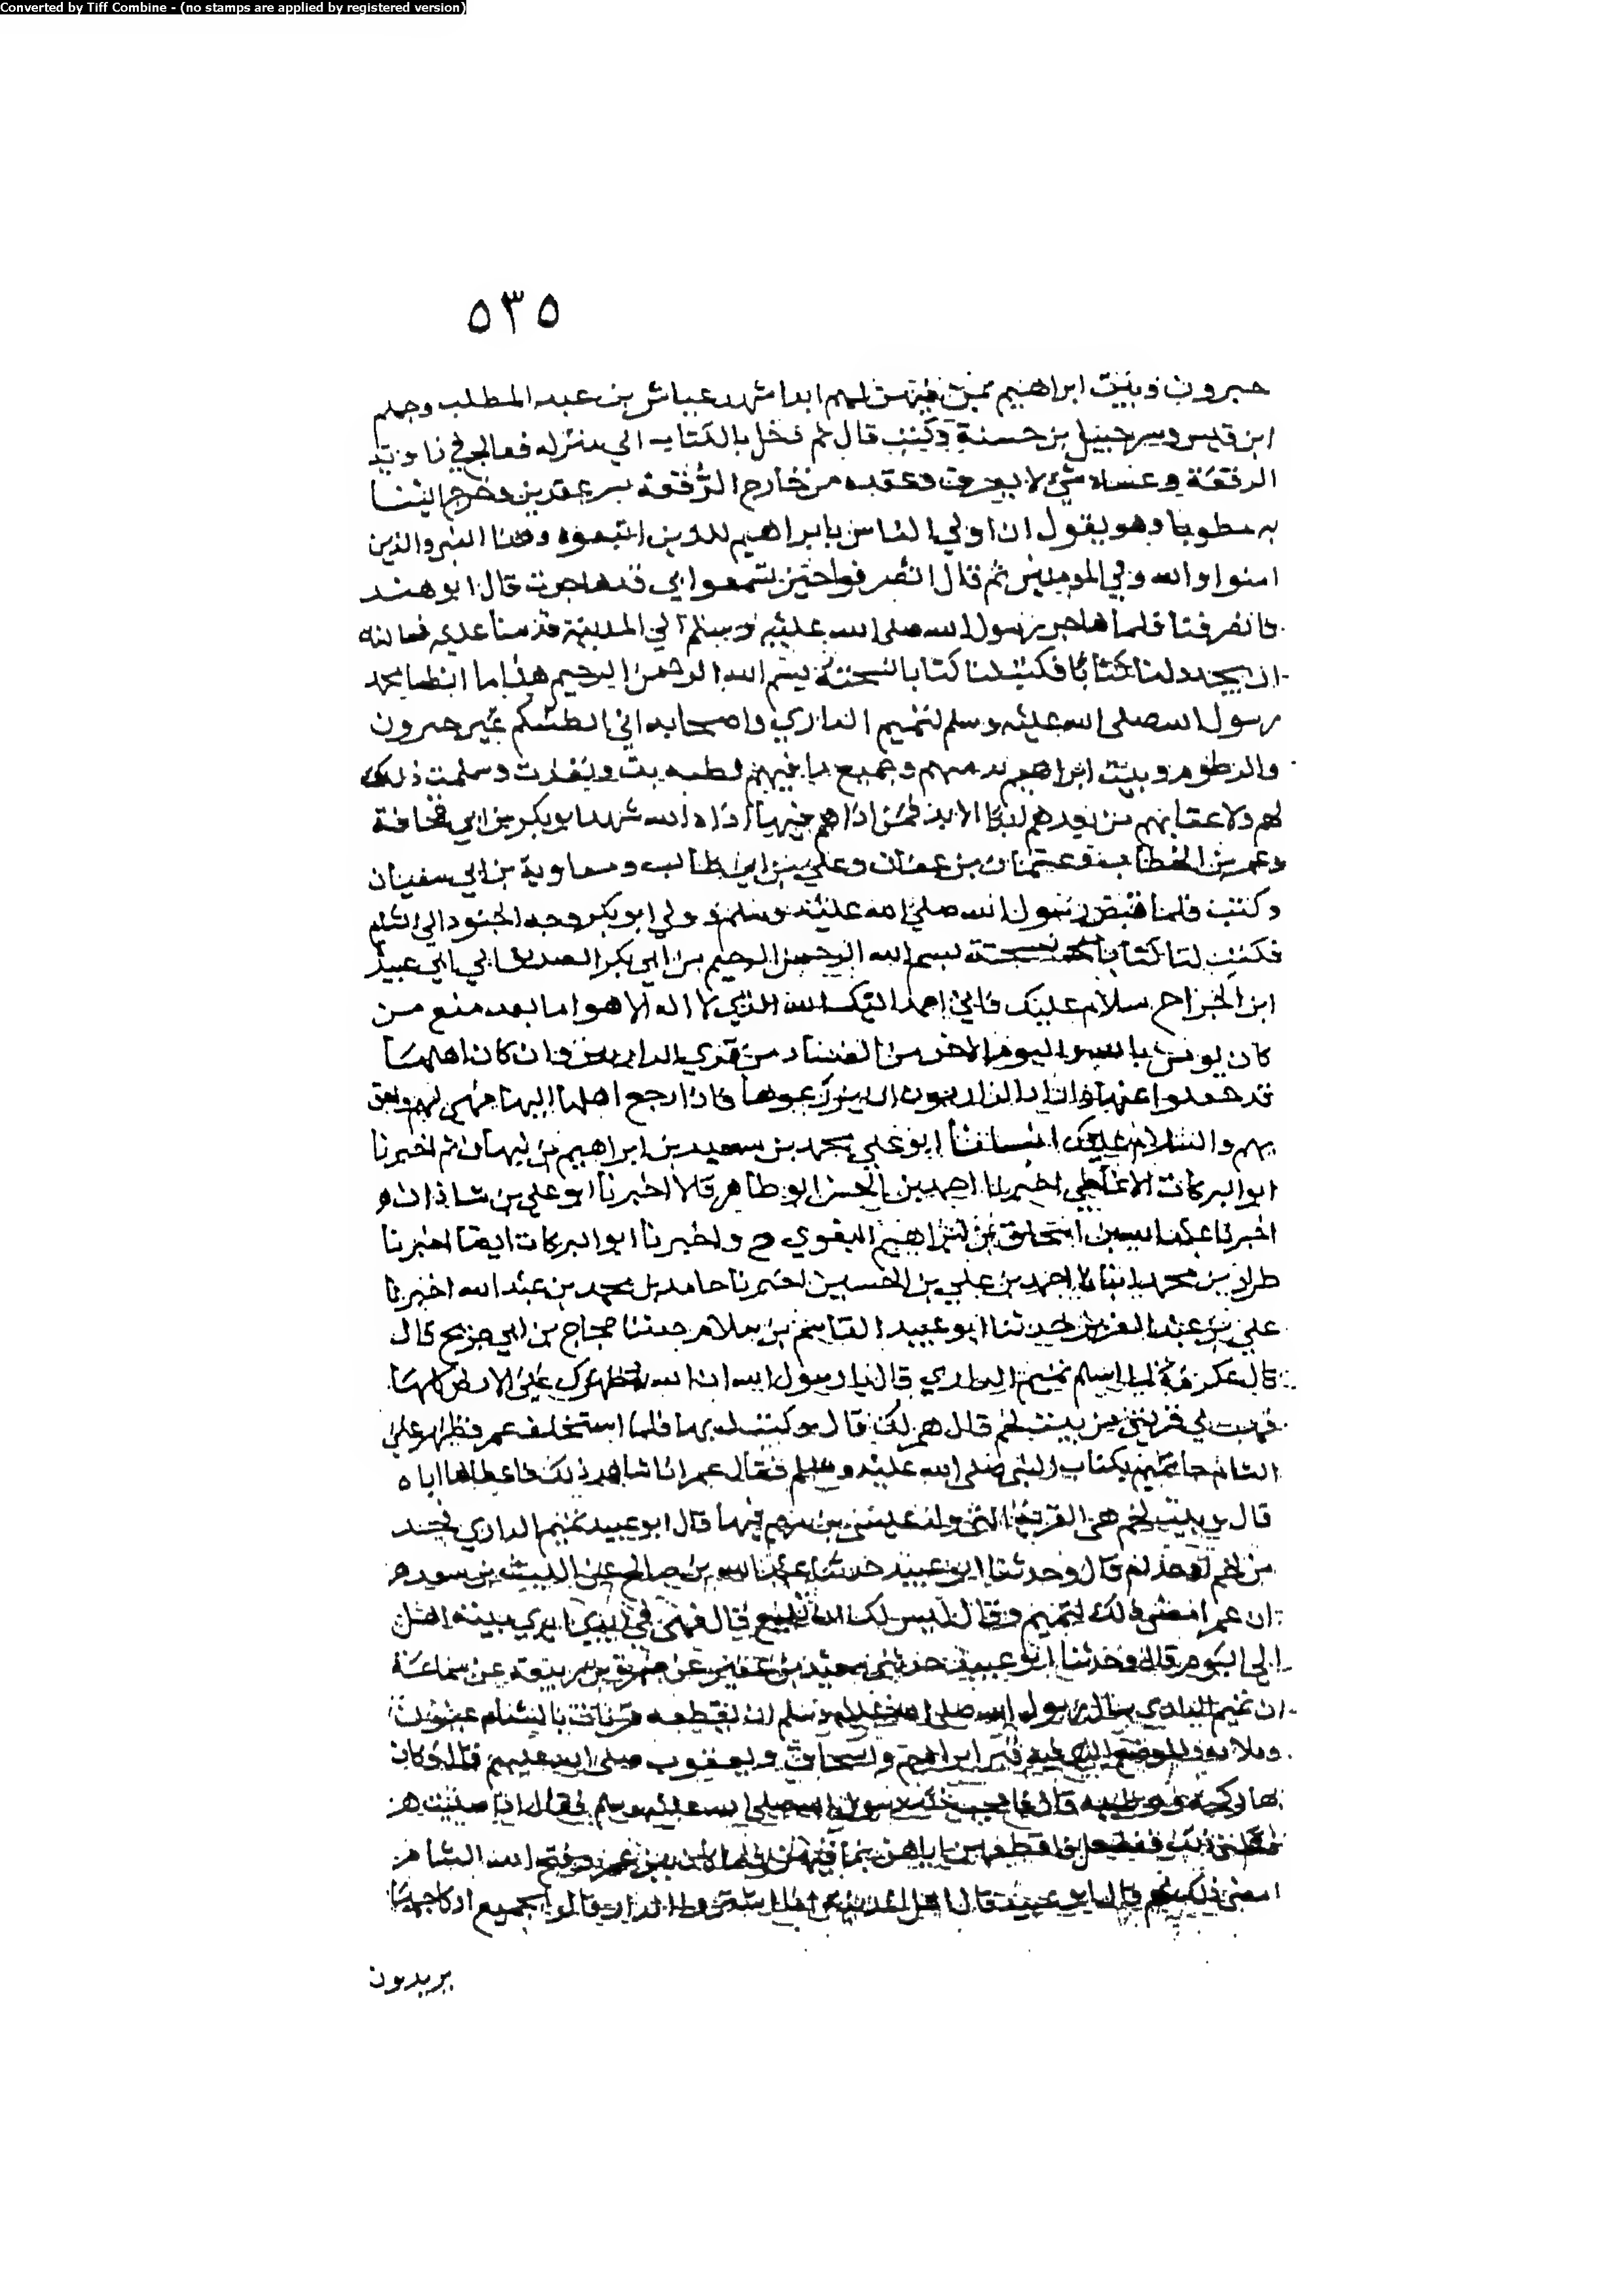 Converted by Tiff Combine - (no stamps are applied by registered version)
٥٣٥
حبرون وبيت ابراهيم بمن فيهن لهم ابدا شهد عباس بن عبد المطلب وجهم
ابن قيس وشرحبيل بن حسنة وكتب قال ثم دخل بالكتاب الى منزله فعالج في زاوية
الرقعة وغشاه بشئ لا يعرف وعقده من خارج الرقعة بسير عقدين وخرج الينا
به مطويا وهو يقول ان اولى الناس بابراهيم للذين اتبعوه وهذا النبي والذين
امنوا والله ولي المومنين ثم قال انصرفوا حتى تسمعوا بي قد هاجرت قال ابو هند
فانصرفنا فلما هاجر رسول الله صلى الله عليه وسلم الي المدينة قدمنا عليه فسالناه
ان يجدد لنا كتابا فكتب لنا كتابا نسخته بسم الله الرحمن الرحيم هذا ما انطا محمد
رسول الله صلى الله عليه وسلم لتميم الداري واصحابه اني انطيتكم عين حبرون
والرطوم وبيت ابراهيم برمتهم وجميع ما فيهم نطية بت ونفذت وسلمت ذلك
لهم ولاعقابهم من بعدهم ابد الابد فمن اذاهم فيها اذاه الله شهد ابو بكر بن ابي قحافة
وعمر بن الخطاب وعثمان بن عفان وعلي بن ابي طالب ومعاوية بن ابي سفيان
وكتب فلما قبض رسول الله صلى الله عليه وسلم وولي ابو بكر وجه الجنود الى الشام
فكتب لنا كتابا نسخته بسم الله الرحمن الرحيم من ابي بكر الصديق الي ابي عبيدة
ابن الجراح سلام عليك فاني احمد اليك الله الذي لا اله الا هو اما بعد منع من
كان يومن بالله واليوم الاخر من الفساد من قري الداريين وان كان اهلها
قد جعلوا عنها واراد الداريون ان يزرعوها فاذا رجع اهلها اليها فهي لهم واحق
بهم والسلام عليك ابو علي محمد بن سعيد بن ابراهيم بن نبهان ثم اخبرنا
ابو البركات الانماطي اخبرنا احمد بن الحسن ابو طاهر قالا اخبرنا ابو علي بن شاذان
اخبرنا عبد الله بن اسحاق بن ابراهيم البغوي ح واخبرنا ابو البركات ايضا اخبرنا
طراد بن محمد انبانا احمد بن علي بن الحسين اخبرنا حامد بن محمد بن عبد الله اخبرنا
علي بن عبد العزيز حدثنا ابو عبيد القاسم بن سلام حدثنا حجاج بن ابي جريج قال
قال عكرمة لما اسلم تميم الداري قال يا رسول الله ان الله مظهرك على الارض كلها
فهب لي قريتي من بيت لحم قال هي لك قال وكتب له بها فلما استخلف عمر فظهر على
الشام جا تميم بكتاب النبي صلى الله عليه وسلم فقال عمر انا شاهد ذلك فاعطاها اياه
قال وبيت لحم هي القرية التي ولد عيسى بن مريم فيها قال ابو عبيد تميم الداري
من لخم قال وحدثنا ابو عبيد حدثنا عبد الله بن صالح عن الليث بن سعد
ان عمر امضى ذلك لتميم وقال ليس لك ان تبيع قال فهي في ايدي اهل بيته
الى اليوم قال وحدثنا ابو عبيد حدثني سعيد بن عفير عن ضمرة بن ربيعة عن سماعة
ان تميم الداري سال رسول الله صلى الله عليه وسلم ان يقطعه قريات بالشام عينون
والموضع الذي فيه قبر ابراهيم واسحاق ويعقوب صلى الله عليهم قال وكان
بها ركحه ووطنه قال فاعجب ذلك رسول الله صلى الله عليه وسلم فقال اذا صليت
ففعل فاقطعه اياهن بما فيهن فلما كان زمن عمر وفتح الله الشام
امضى ذلك قال ابو عبيد قال اهل المدينة اذا اشتروا الدار قالوا بجميع اركاحها
يريدون